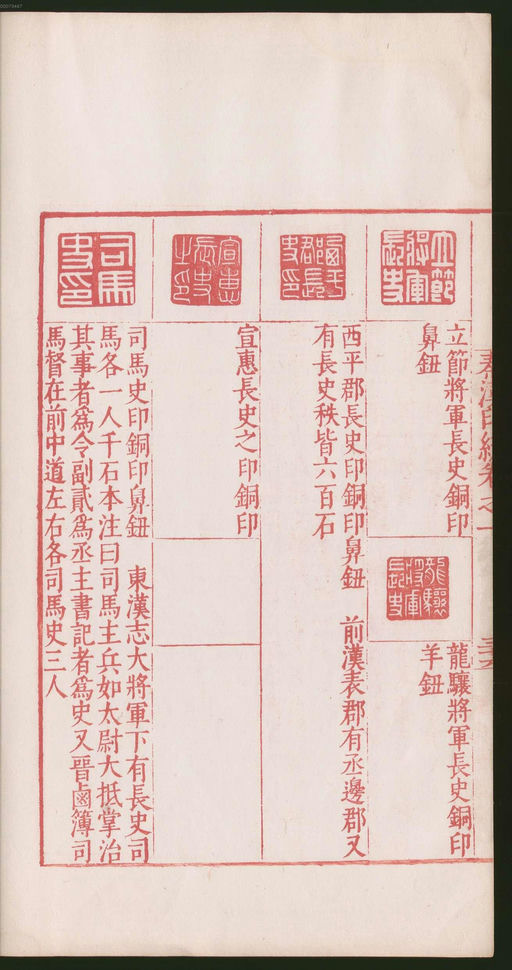 立節將軍長史
立節將軍長史銅印
鼻鈕
龍驤將軍長史
龍驤將軍長史銅印
羊鈕
西平郡長史印
西平郡長史印銅印鼻鈕　前漢表郡有丞邊郡又
有長史秩皆六百石
宣惠長史之印
宣惠長史之印銅印
司馬史印
司馬史印銅印鼻鈕　東漢志大將軍下有長史司
馬各一人千石本注曰司馬主兵如太尉大抵掌治
其事者爲令副貳爲丞主書記者爲史又晉鹵簿司
馬督在前中道左右各司馬史三人
00073447